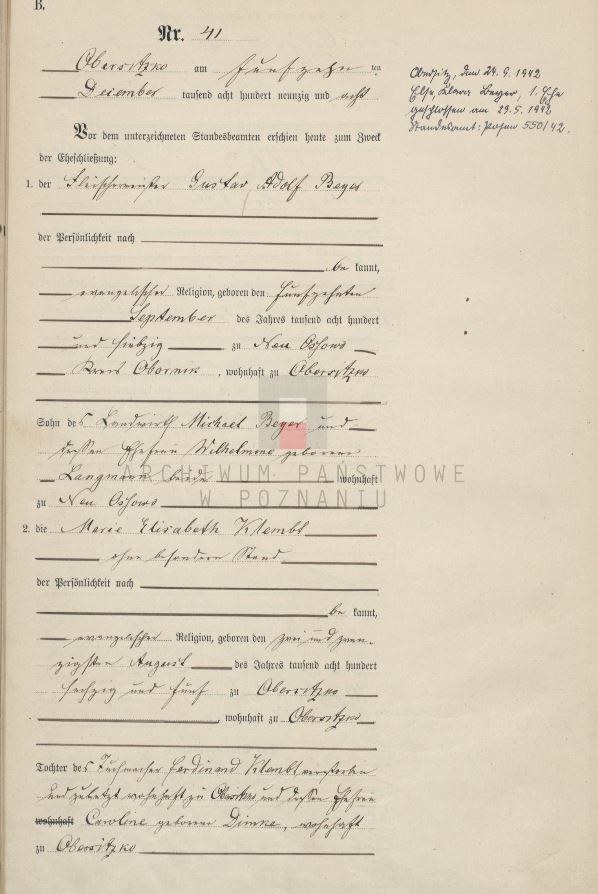 B.
Nr. 41
Obersitzko am fünfzehn ten
December tausend acht hundert neunzig und acht
Vor dem unterzeichneten Standesbeamten erschien heute zum Zweck
der Eheschließung:
1. der Fleischermeister Gustav Adolf Beyer
der Persönlichkeit nach
be kannt,
evangelischer Religion, geboren den fünfzehnten
September des Jahres tausend acht hundert
und siebzig zu Neu Ossowo
Kreis Obornik, wohnhaft zu Obersitzko
Sohn des Landwirth Michael Beyer und
dessen Ehefrau Wilhelmine geborene
Langmann beide wohnhaft
zu Neu Ossowo
2. die Marie Elisabeth Klembt
ohne besondern Stand
der Persönlichkeit nach
be kannt,
evangelischer Religion, geboren den zwei und zwan-
zigsten August des Jahres tausend acht hundert
sechzig und fünf zu Obersitzko
, wohnhaft zu Obersitzko
Tochter des Tuchmacher Ferdinand Klembt verstorben
und zuletzt wohnhaft zu Obersitzko und dessen Ehefrau
wohnhaft Caroline geborene Dimke, wohnhaft
zu Obersitzko
Obersitz, den 24. 9. 1942
Else, Klara Beyer, 1. Ehe
geschlossen am 29.5.1942
Standesamt: Posen 550/42.
ARCHIWUM PAŃSTWOWE
W POZNANIU